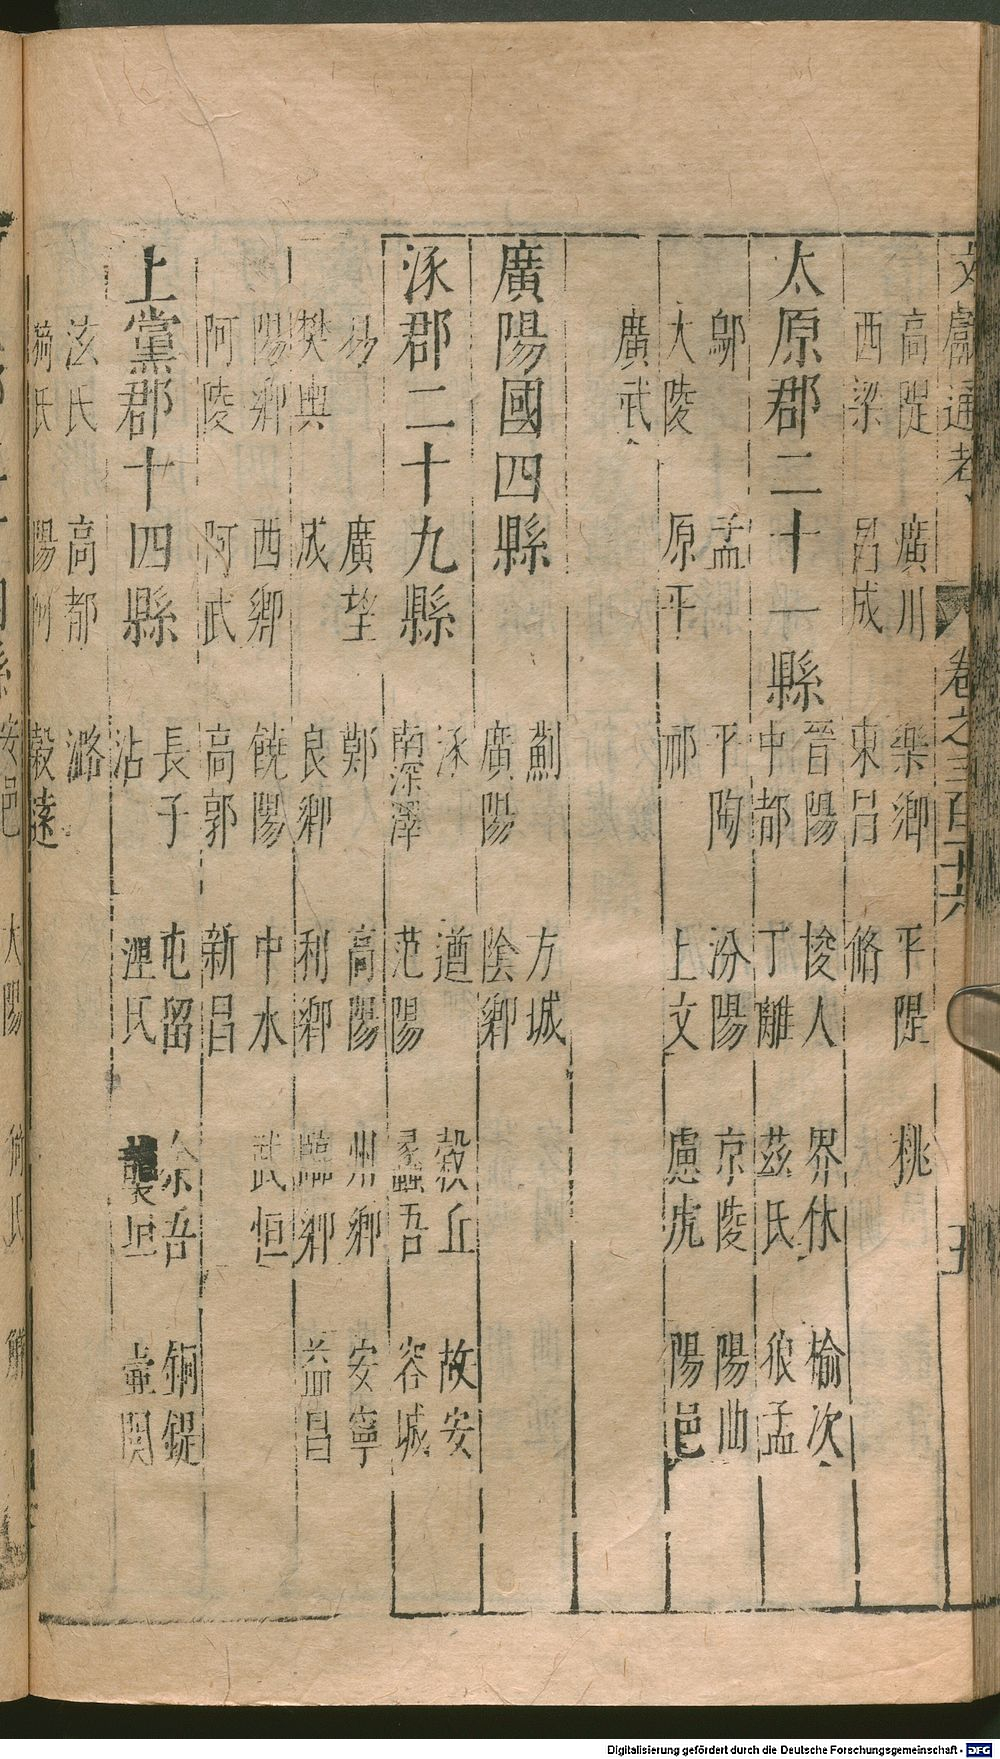 文獻通考 卷之三百十六 五
高隄 廣川 樂鄉 平隄 桃
西梁 昌成 東昌 脩
太原郡二十一縣
晉陽 悛人 界休 榆次
中都 丁離 茲氏 狼孟
鄔 盂 平陶 汾陽 京陵 陽曲
大陵 原平 祁 上文 慮虎 陽邑
廣武
廣陽國四縣
薊 方城
廣陽 陰鄉
涿郡二十九縣
涿 遒 穀丘 故安
南深澤 范陽 蠡吾 容城
易 廣望 鄭 高陽 州鄉 安寧
樊輿 成 良鄉 利鄉 臨鄉 益昌
陽鄉 西鄉 饒陽 中水 武恒
阿陵 阿武 高郭 新昌
上黨郡十四縣
長子 屯留 余吾 銅鍉
沾 涅氏 襲垣 壷関
泫氏 高都 潞
猗氏 陽阿 穀遠
安邑 大陽
Digitalisierung gefördert durch die Deutsche Forschungsgemeinschaft - DFG